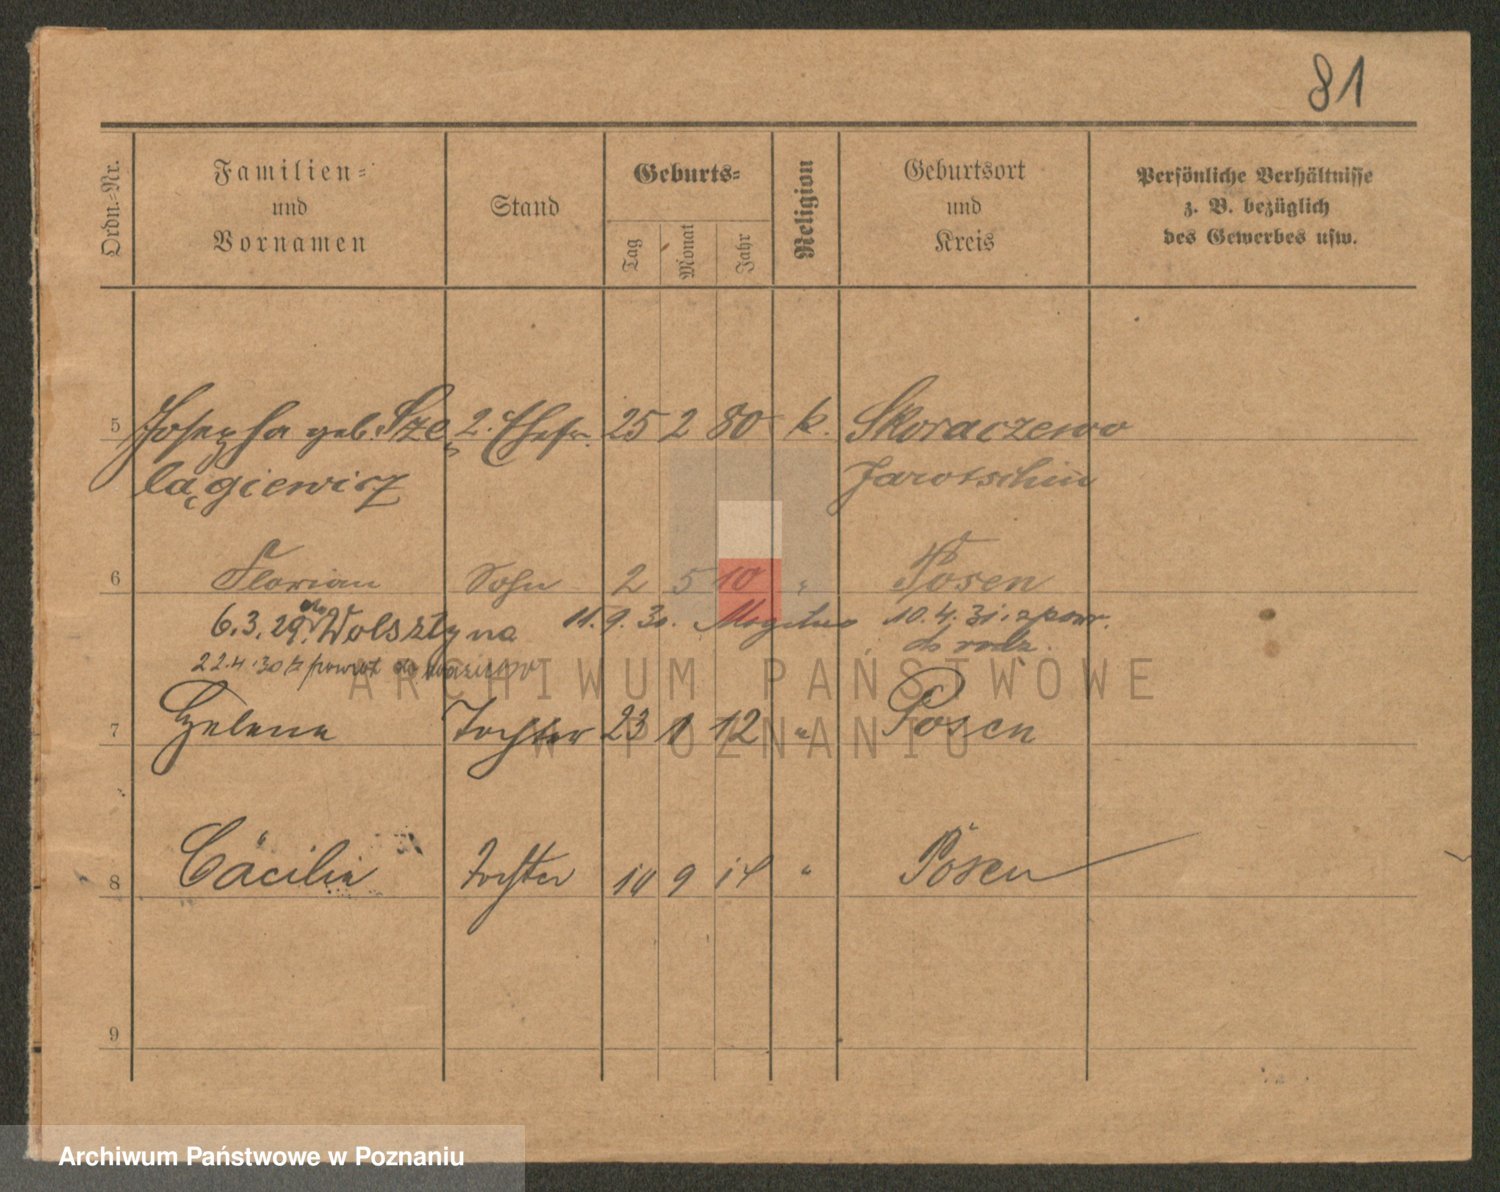 81
Ordn.-Nr.
Familien-
und
Vornamen
Stand
Geburts-
Tag
Monat
Jahr
Religion
Geburtsort
und
Kreis
Persönliche Verhältnisse
z. B. bezüglich
des Gewerbes usw.
5 Josepha geb. Sze 2. Ehefr. 25 2 80 k. Skoraczewo
lągiewicz Jarotschin
6 Florian Sohn 2 5 10 " Posen
6.3.29. do Wolsztyna 11.9.30. Mogilno 10.4.31. z pow.
do rodz.
22.4.30 z powrot do
ARCHIWUM PAŃSTWOWE
7 Helene Tochter 23 1 12 " Posen
W POZNANIU
8 Cäcilie Tochter 10 9 14 " Posen
9
Archiwum Państwowe w Poznaniu